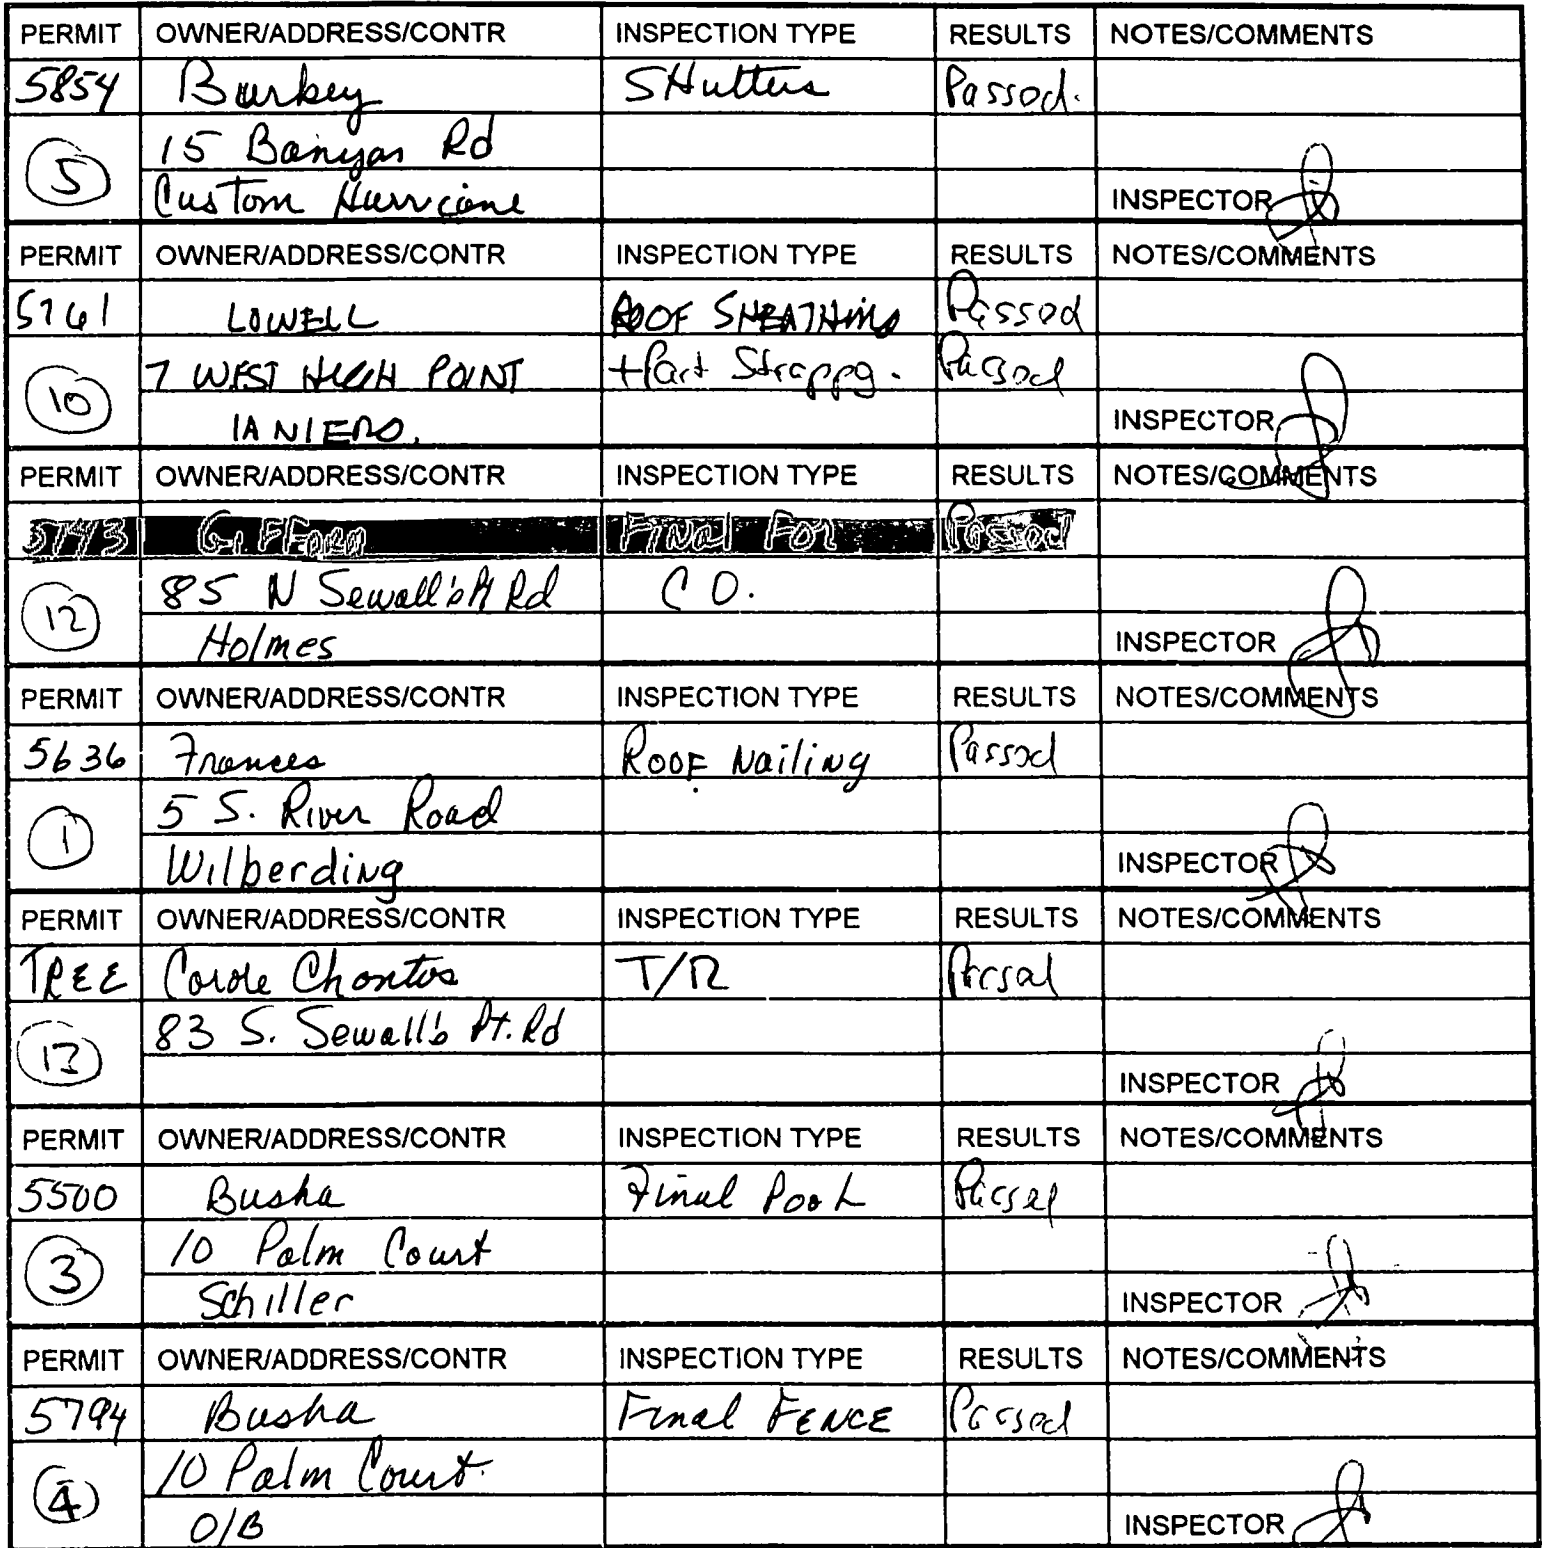 PERMIT OWNER/ADDRESS/CONTR INSPECTION TYPE RESULTS NOTES/COMMENTS
5854 Burkey SHutters Passed.
15 Banyan Rd
5
Custom Hurricane INSPECTOR
PERMIT OWNER/ADDRESS/CONTR INSPECTION TYPE RESULTS NOTES/COMMENTS
5761 LOWELL ROOF SHEATHING Passed
7 WEST HIGH POINT +Part Strappg. Passed
10
IANIERO. INSPECTOR
PERMIT OWNER/ADDRESS/CONTR INSPECTION TYPE RESULTS NOTES/COMMENTS
5743 GIFFORD FINAL FOR Passed
85 N Sewall's Pt Rd C O.
12
Holmes INSPECTOR
PERMIT OWNER/ADDRESS/CONTR INSPECTION TYPE RESULTS NOTES/COMMENTS
5636 Frances ROOF Nailing Passed
5 S. River Road
1
Wilberding INSPECTOR
PERMIT OWNER/ADDRESS/CONTR INSPECTION TYPE RESULTS NOTES/COMMENTS
TREE Carole Chontos T/R Passed
83 S. Sewall's Pt. Rd
13
INSPECTOR
PERMIT OWNER/ADDRESS/CONTR INSPECTION TYPE RESULTS NOTES/COMMENTS
5500 Busha Final Pool Passed
10 Palm Court
3
Schiller INSPECTOR
PERMIT OWNER/ADDRESS/CONTR INSPECTION TYPE RESULTS NOTES/COMMENTS
5794 Busha Final FENCE Passed
10 Palm Court.
4
O/B INSPECTOR